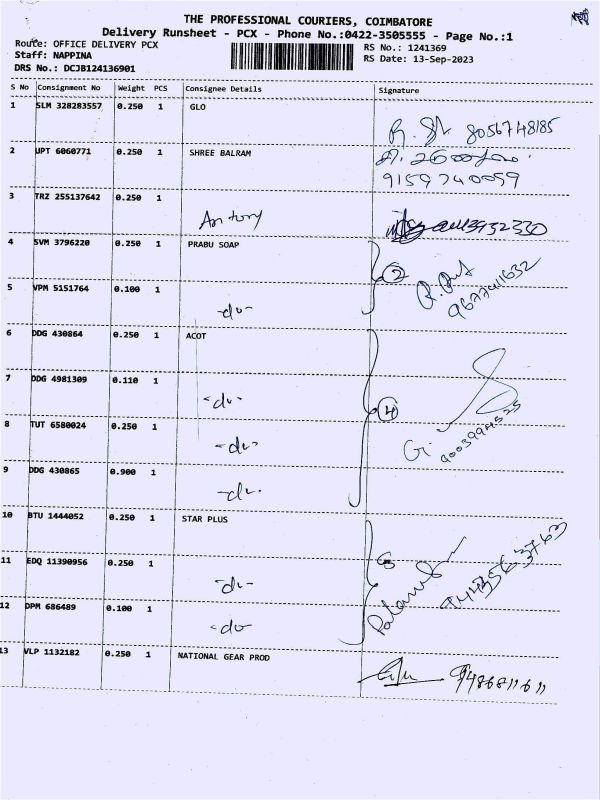 THE PROFESSIONAL COURIERS, COIMBATORE
Delivery Runsheet - PCX - Phone No.:0422-3505555 - Page No.:1
Route: OFFICE DELIVERY PCX
RS No.: 1241369
Staff: NAPPINA
RS Date: 13-Sep-2023
DRS No.: DCJB124136901
S No Consignment No Weight PCS Consignee Details Signature
1 SLM 328283557 0.250 1 GLO
8056748185
2 UPT 6060771 0.250 1 SHREE BALRAM
9159740059
3 TRZ 255137642 0.250 1 Antony
4 SVM 3796220 0.250 1 PRABU SOAP
2
5 VPM 5151764 0.100 1 -do-
6 DDG 430864 0.250 1 ACOT
7 DDG 4981309 0.110 1 -do-
4
8 TUT 6580024 0.250 1 -do-
G.
9 DDG 430865 0.900 1 -do-
10 BTU 1444052 0.250 1 STAR PLUS
11 EDQ 11390956 0.250 1 -do-
12 DPM 686489 0.100 1 -do-
13 VLP 1132182 0.250 1 NATIONAL GEAR PROD